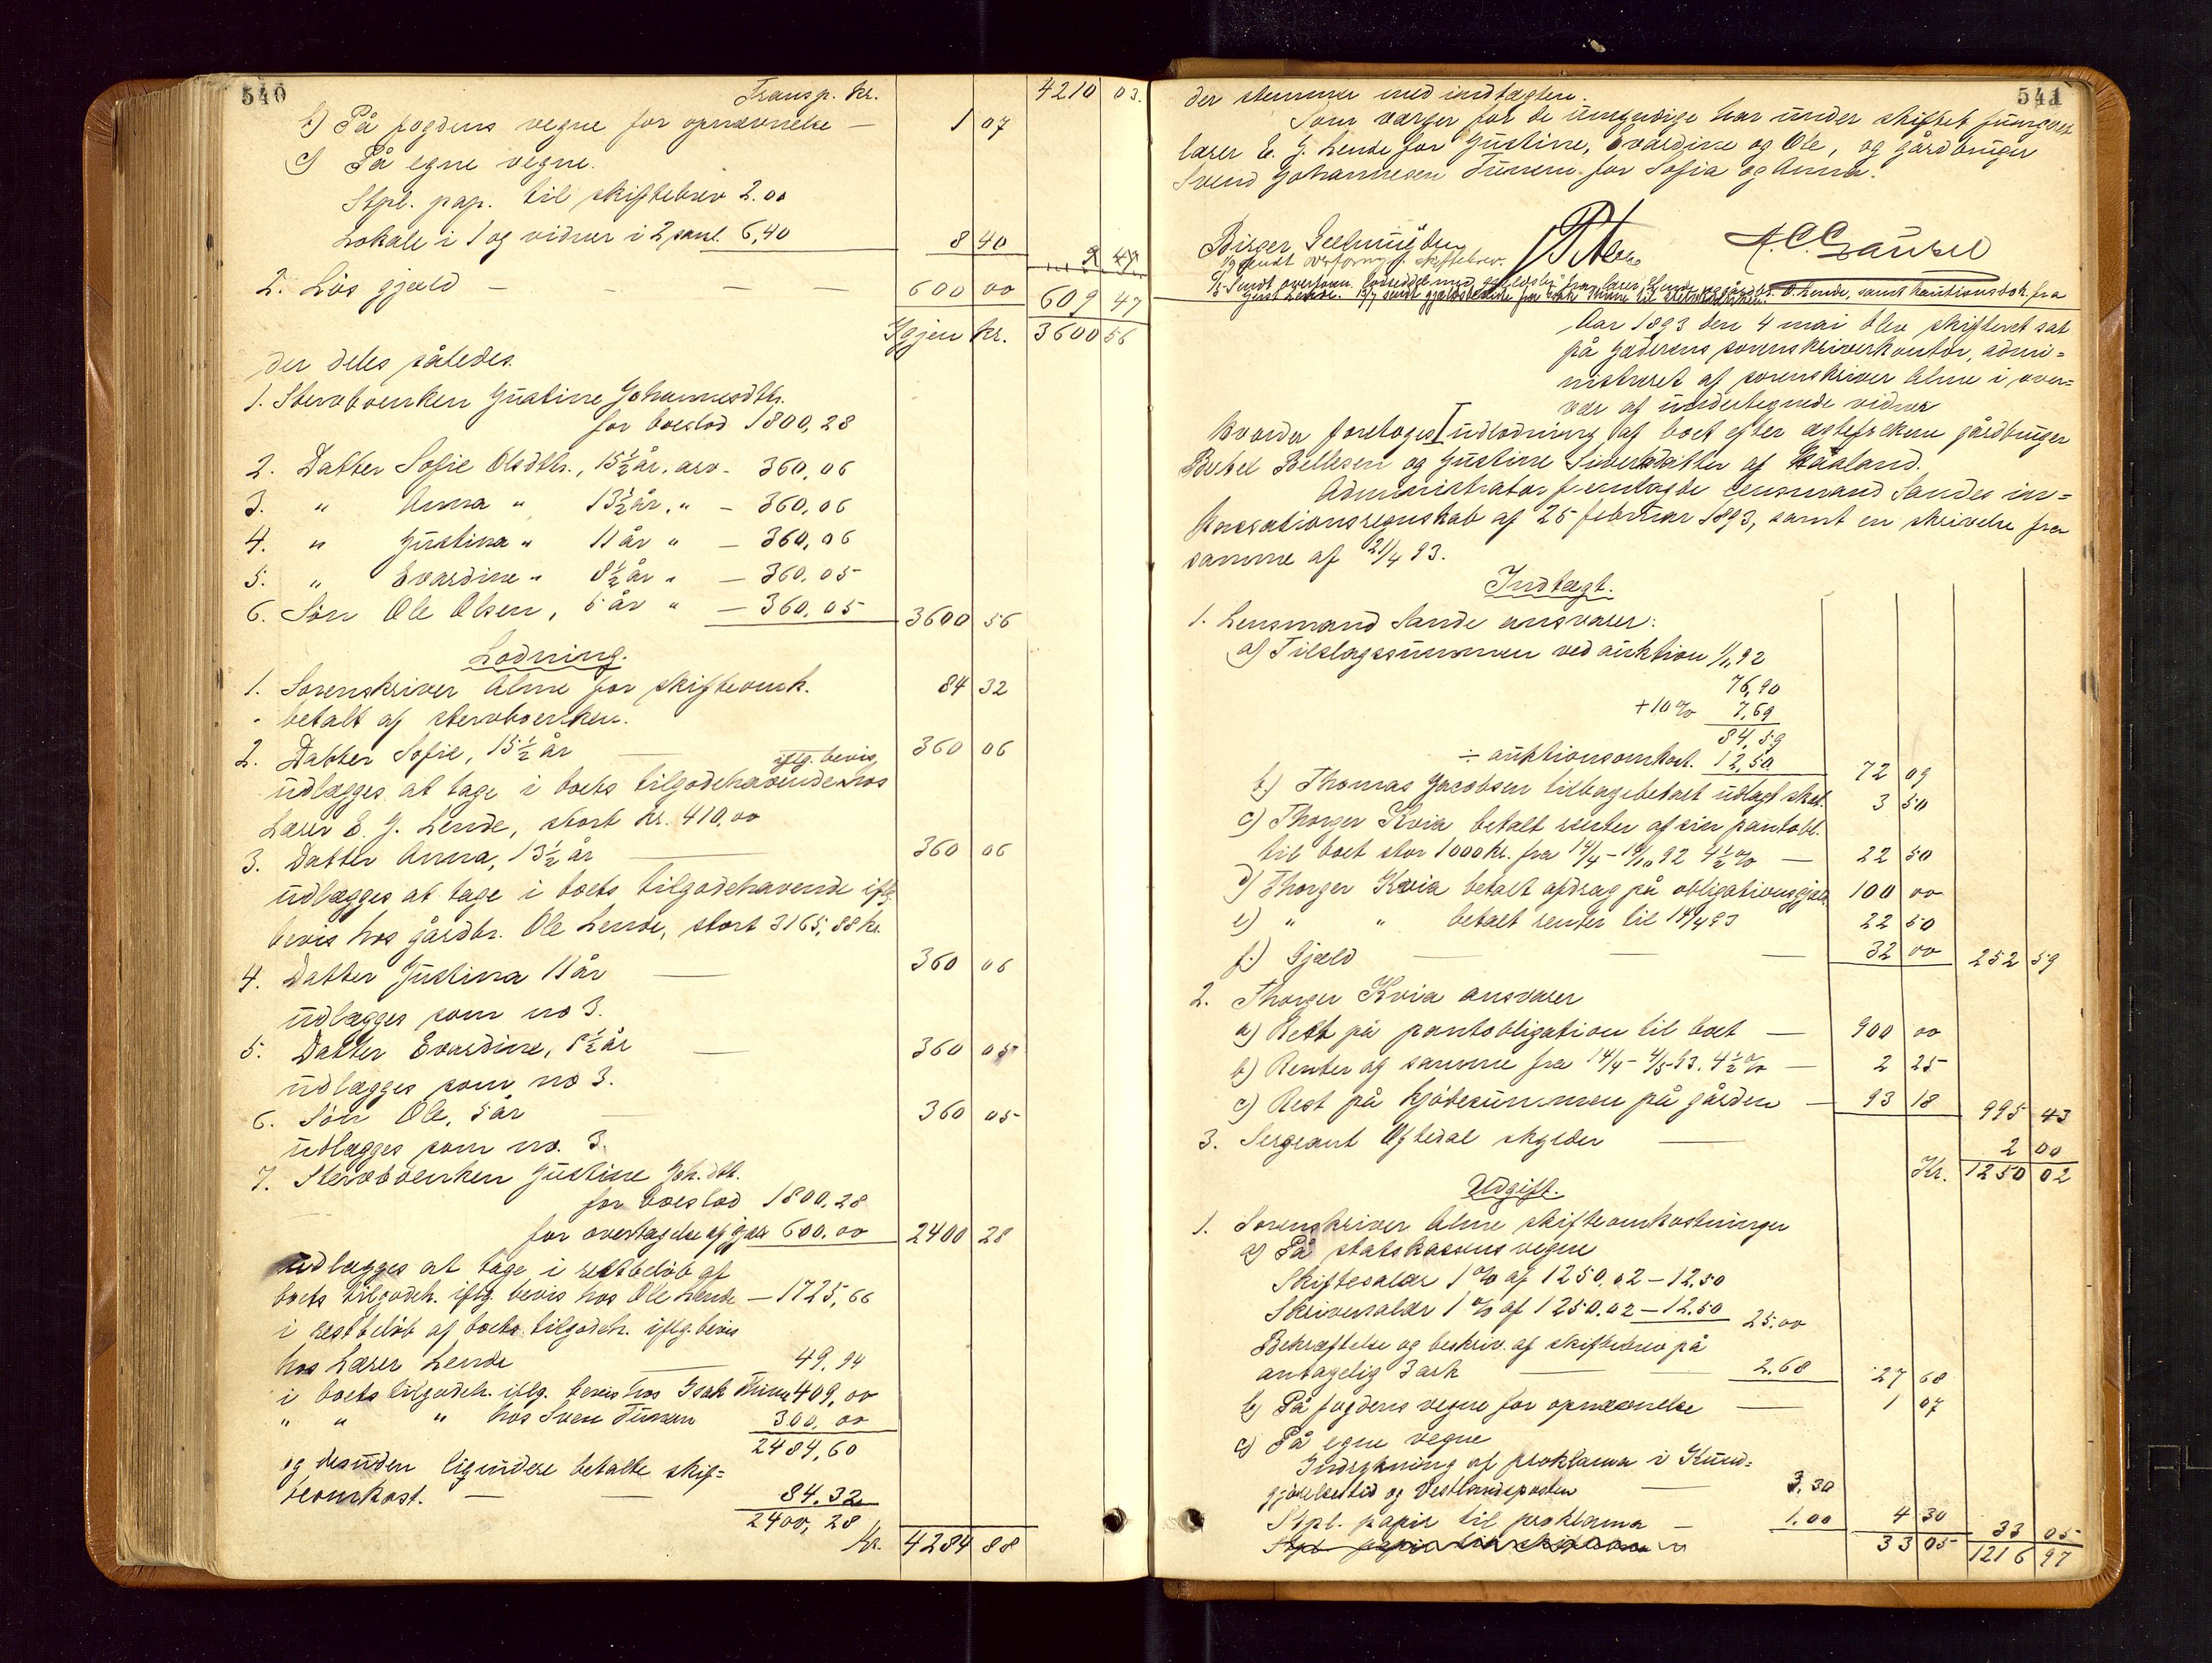 540
Transp. kr. 4210 03.
b) På fogdens vegne for opnævnelse — 1 07
c) På egne vegne.
Stpl. pap. til skiftebrev 2.00
Lokale i 1 og vidner i 2 saml. 6,40 8 40
9 47
2. Lös gjæld — — — — 600 00 609 47
Igjen kr. 3600 56
der deles således.
1. Stervboenken Gustine Johannesdtr.
for boeslod 1800,28
2. Datter Sofie Olsdtr., 15½ år, arv - 360,06
3. " Anna " 13½ år, " - 360,06
4. " Justina " 11 år " — 360,06
5. " Evardine " 8½ år " — 360,05
6. Sön Ole Olsen, 5 år " — 360,05 3600 56
Lodning.
1. Sorenskriver Alme for skifteomk. 84 32
- betalt af stervboenken.
2. Datter Sofie, 15½ år — 360 06
iflg. bevis
udlægges at tage i boets tilgodehavende hos
Lærer E. G. Lende, stort kr. 410,00
3. Datter Anna, 13½ år — 360 06
udlægges at tage i boets tilgodehavende iflg.
bevis hos gårdbr. Ole Lende, stort 3165,88 kr.
4. Datter Justina 11 år — 360 06
udlægges som no 3.
5. Datter Evardine, 8½ år — 360 05
udlægges som no 3.
6. Sön Ole, 5 år — 360 05
udlægges som no. 3.
7. Stervboenken Justine Joh.dtr.
for boeslod 1800,28
for overtagelse af gjæld 600.00 2400 28
udlægges at tage i restbelöb af
boets tilgodeh. iflg. bevis hos Ole Lende — 1725,66
i restbelöb af boets tilgodeh. iflg. bevis
hos Lærer Lende — 49.94
i boets tilgodeh. iflg. bevis hos Isak Tunem 409,00
" " " hos Sven Tunem 300,00
2484,60
og desuden ligudere betalte skif=
teomkost. — — 84.32
2400,28
Kr. 4284 88
541
der stemmer med indtægten.
Som værger for de umyndige har under skiftet fungeret
lærer E. G. Lende for Justine, Evardine og Ole, og gårdbruger
Svend Johannesen Tunem for Sofia og Anna.
Birger Geelmuyden
A. C. Gausel
Aar 1893 den 4 mai blev skifteret sat
på Jæderens sorenskriverkontor, admi=
nistreret af sorenskriver Alme i over=
vær af undertegnede vidner
Hvorda foretoges Udlodning af boet efter ægtefolkene gårdbruger
Bertel Bellesen og Justine Siversdatter af Håaland.
Administrator fremlagde lensmand Sandes in=
kassationsregnskab af 25 februar 1893, samt en skrivelse fra
samme af 21/4 93.
Indtægt.
1. Lensmand Sande ansvarer:
a) Tilslagssummen ved auktion 1/11 92
76,90
+ 10 % 7,69
84,59
÷ auktionsomkost. 12,50 72 09
b.) Thomas Jacobsen tilbagebetalt udlagt skat. 3 50
c) Thorger Kvia betalt renter af sin pantobl.
til boet stor 1000 kr. fra 14/4 - 14/10 92 4½ % — 22 50
d) Thorger Kvia betalt afdrag på obligationsgjæld 100 00
e) " " betalt renter til 14/4 93 22 50
f.) Gjæld — — — 32 00 252 59
2. Thorger Kvia ansvarer
a) Rest på pantobligation til boet — 900 00
b) Renter af samme fra 14/4 - 4/5 93. 4½ % — 2 25
c) Rest på kjöbesummen på gården — 93 18 995 43
3. Sergeant Oftedal skylder — 2 00
Kr. 1250 02
Udgift.
1. Sorenskriver Alme skifteomkostninger
a) På statskassens vegne
Skiftesalær 1 % af 1250.02 — 12.50
Skriversalær 1 % af 1250.02 — 12.50 25.00
Bekræftelse og beskriv. af skiftebrev på
antagelig 3 ark — — 2.68 27 68
b) På fogdens vegne for opnævnelse — 1 07
c) På egne vegne
Indrykning af proklama i Kund=
gjörelsestid og Vestlandsposten — 3,30
Stpl. papir til proklama — 1.00 4 30 33 05
33 05 1216 97